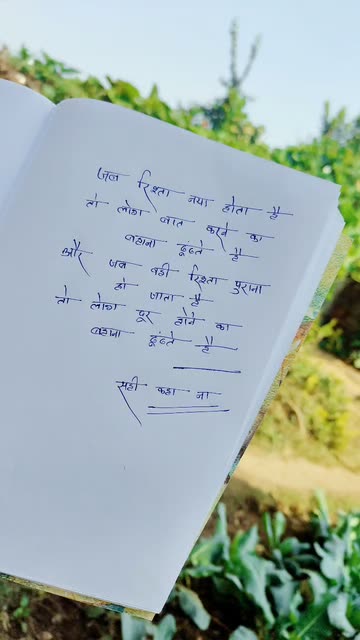 जब रिश्ता नया होता है
तो लोग बात करने का
बहाना ढूंढते है
और जब वही रिश्ता पुराना
हो जाता है
तो लोग दूर होने का
बहाना ढूंढते है
सही कहा ना